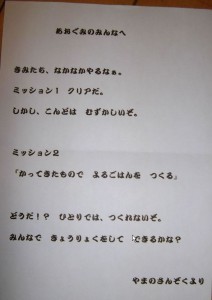 あおぐみのみんなへ
きみたち、なかなかやるなぁ。
ミッション1 クリアだ。
しかし、こんどは むずかしいぞ。
ミッション2
「かってきたもので よるごはんを つくる」
どうだ!? ひとりでは、つくれないぞ。
みんなで きょうりょくをして できるかな?
やまのさんぞくより